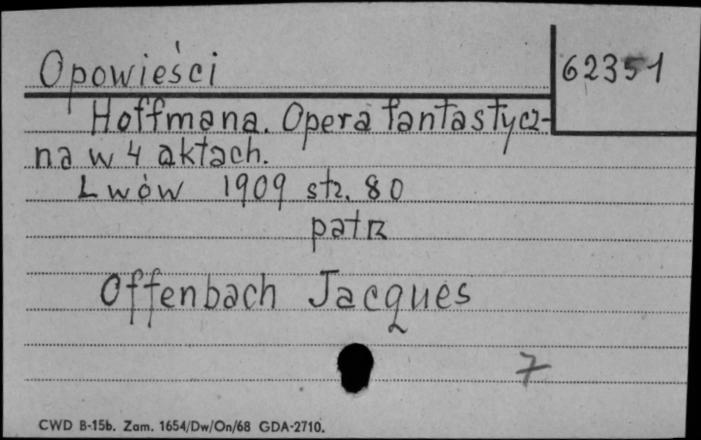 Opowieści
62351
Hoffmana. Opera fantastycz-
na w 4 aktach.
Lwów 1909 str. 80
patrz
Offenbach Jacques
7
CWD B-15b. Zam. 1654/Dw/On/68 GDA-2710.